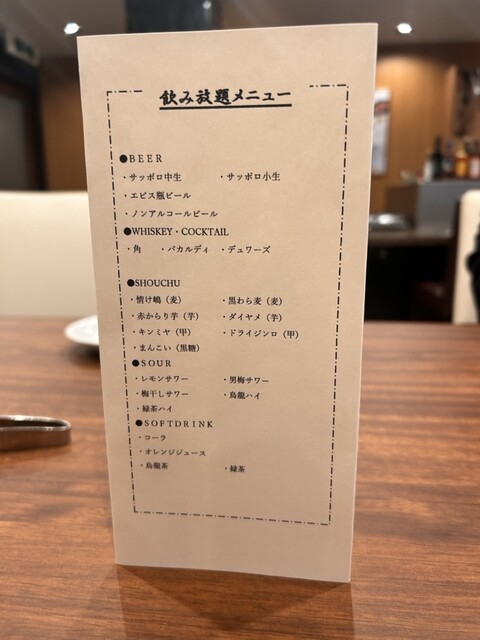 飲み放題メニュー
●BEER
・サッポロ中生 ・サッポロ小生
・エビス瓶ビール
・ノンアルコールビール
●WHISKEY・COCKTAIL
・角 ・バカルディ ・デュワーズ
●SHOUCHU
・情け嶋（麦） ・黒わら麦（麦）
・赤からり芋（芋） ・ダイヤメ（芋）
・キンミヤ（甲） ・ドライジンロ（甲）
・まんこい（黒糖）
●SOUR
・レモンサワー ・男梅サワー
・梅干しサワー ・烏龍ハイ
・緑茶ハイ
●SOFTDRINK
・コーラ
・オレンジジュース
・烏龍茶 ・緑茶